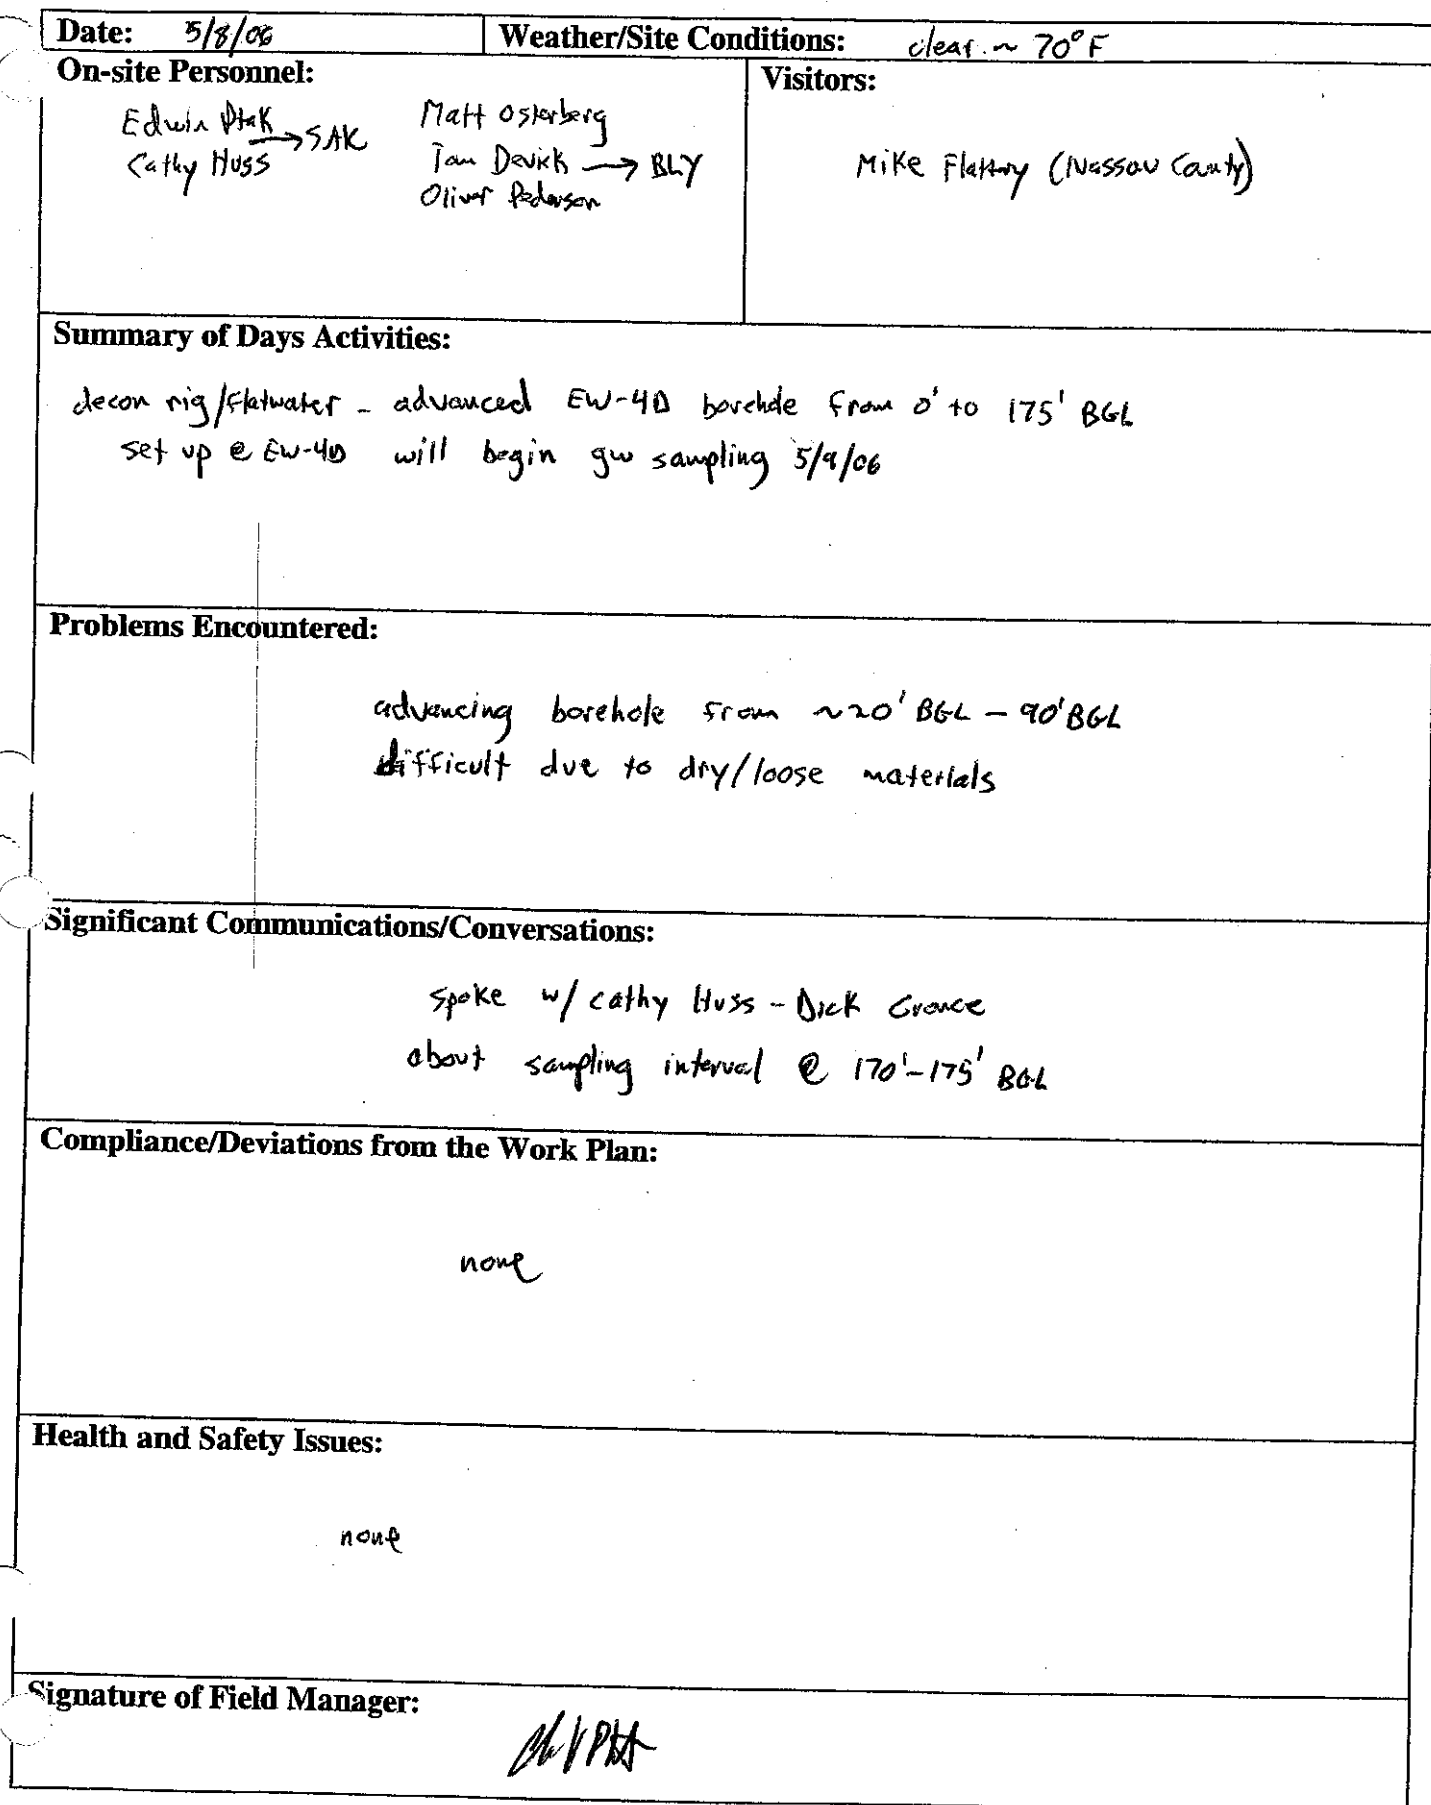 Date: 5/8/06
Weather/Site Conditions: clear ~ 70°F
On-site Personnel:
Edwin Ptak
Cathy Huss → SAK
Matt Osterberg
Tom Devick → BLY
Oliver Pederson
Visitors:
Mike Flattery (Nassau County)
Summary of Days Activities:
decon rig/flatwater - advanced EW-4D borehole from 0' to 175' BGL
set up @ EW-4D will begin gw sampling 5/9/06
Problems Encountered:
advancing borehole from ~20' BGL - 90' BGL
difficult due to dry/loose materials
Significant Communications/Conversations:
spoke w/ cathy Huss - Dick
about sampling interval @ 170'-175' BGL
Compliance/Deviations from the Work Plan:
none
Health and Safety Issues:
none
Signature of Field Manager: